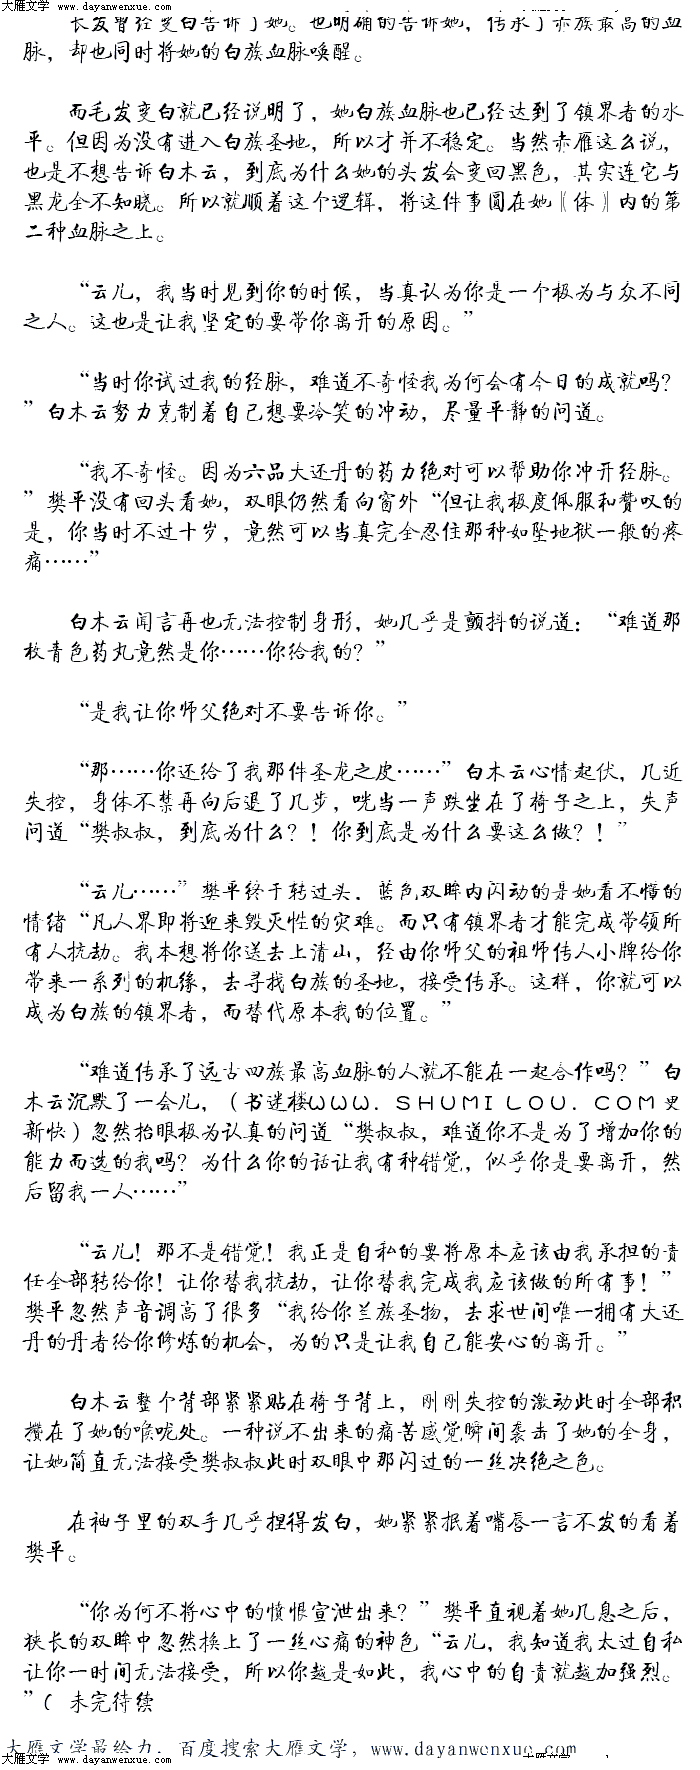 大雁文学 www.dayanwenxue.com 大雁文学 www.dayanwenxue.com
长发曾经变白告诉了她。也明确的告诉她，传承了赤族最高的血
脉，却也同时将她的白族血脉唤醒。
而毛发变白就已经说明了，她白族血脉也已经达到了镇界者的水
平。但因为没有进入白族圣地，所以才并不稳定。当然赤雁这么说，
也是不想告诉白木云，到底为什么她的头发会变回黑色，其实连它与
黑龙全不知晓。所以就顺着这个逻辑，将这件事圆在她〖体〗内的第
二种血脉之上。
“云儿，我当时见到你的时候，当真认为你是一个极为与众不同
之人。这也是让我坚定的要带你离开的原因。”
“当时你试过我的经脉，难道不奇怪我为何会有今日的成就吗？
”白木云努力克制着自己想要冷笑的冲动，尽量平静的问道。
“我不奇怪。因为六品大还丹的药力绝对可以帮助你冲开经脉。
”樊平没有回头看她，双眼仍然看向窗外“但让我极度佩服和赞叹的
是，你当时不过十岁，竟然可以当真完全忍住那种如坠地狱一般的疼
痛……”
白木云闻言再也无法控制身形，她几乎是颤抖的说道：“难道那
枚青色药丸竟然是你……你给我的？”
“是我让你师父绝对不要告诉你。”
“那……你还给了我那件圣龙之皮……”白木云心情起伏，几近
失控，身体不禁再向后退了几步，咣当一声跌坐在了椅子之上，失声
问道“樊叔叔，到底为什么？！你到底是为什么要这么做？！”
“云儿……”樊平终于转过头，蓝色双眸内闪动的是她看不懂的
情绪“凡人界即将迎来毁灭性的灾难。而只有镇界者才能完成带领所
有人抗劫。我本想将你送去上清山，经由你师父的祖师传人小牌给你
带来一系列的机缘，去寻找白族的圣地，接受传承。这样，你就可以
成为白族的镇界者，而替代原本我的位置。”
“难道传承了远古四族最高血脉的人就不能在一起合作吗？”白
木云沉默了一会儿，（书迷楼ＷＷＷ．ＳＨＵＭＩＬＯＵ．ＣＯＭ更
新快）忽然抬眼极为认真的问道“樊叔叔，难道你不是为了增加你的
能力而选的我吗？为什么你的话让我有种错觉，似乎你是要离开，然
后留我一人……”
“云儿！那不是错觉！我正是自私的要将原本应该由我承担的责
任全部转给你！让你替我抗劫，让你替我完成我应该做的所有事！”
樊平忽然声音调高了很多“我给你兰族圣物，去求世间唯一拥有大还
丹的丹者给你修炼的机会，为的只是让我自己能安心的离开。”
白木云整个背部紧紧贴在椅子背上，刚刚失控的激动此时全部积
攒在了她的喉咙处。一种说不出来的痛苦感觉瞬间袭击了她的全身，
让她简直无法接受樊叔叔此时双眼中那闪过的一丝决绝之色。
在袖子里的双手几乎捏得发白，她紧紧抿着嘴唇一言不发的看着
樊平。
“你为何不将心中的愤恨宣泄出来？”樊平直视着她几息之后，
狭长的双眸中忽然换上了一丝心痛的神色“云儿，我知道我太过自私
让你一时间无法接受，所以你越是如此，我心中的自责就越加强烈。
”（ 未完待续
大雁文学最给力，百度搜索大雁文学，www.dayanwenxue.com
大雁文学 www.dayanwenxue.com 大雁文学 www.dayanwenxue.com